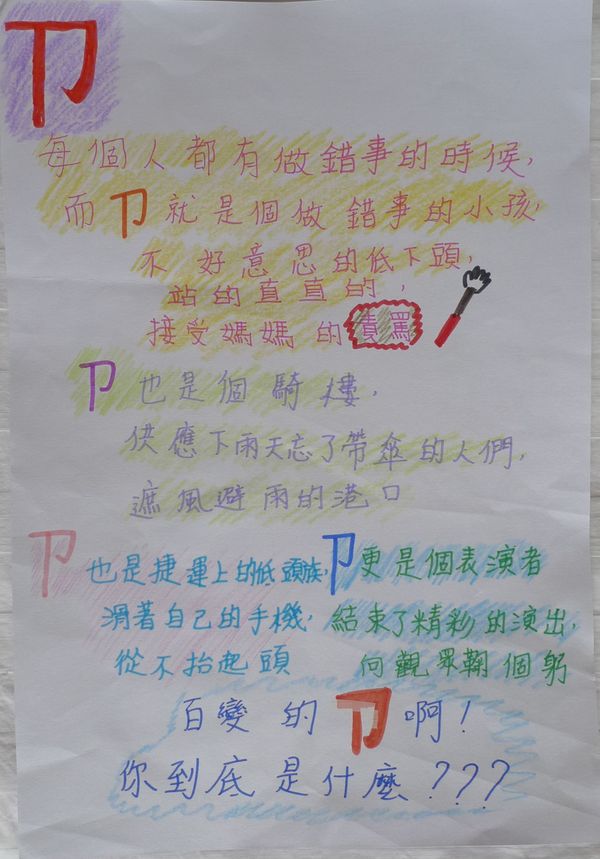 ㄗ
每個人都有做錯事的時候，
而ㄗ就是個做錯事的小孩，
不好意思的低下頭，
站的直直的，
接受媽媽的責罵
ㄗ也是個騎樓，
供應下雨天忘了帶傘的人們，
遮風避雨的港口
ㄗ也是捷運上的低頭族，
滑著自己的手機，
從不抬起頭
ㄗ更是個表演者
結束了精彩的演出，
向觀眾鞠個躬
百變的ㄗ啊！
你到底是什麼？？？